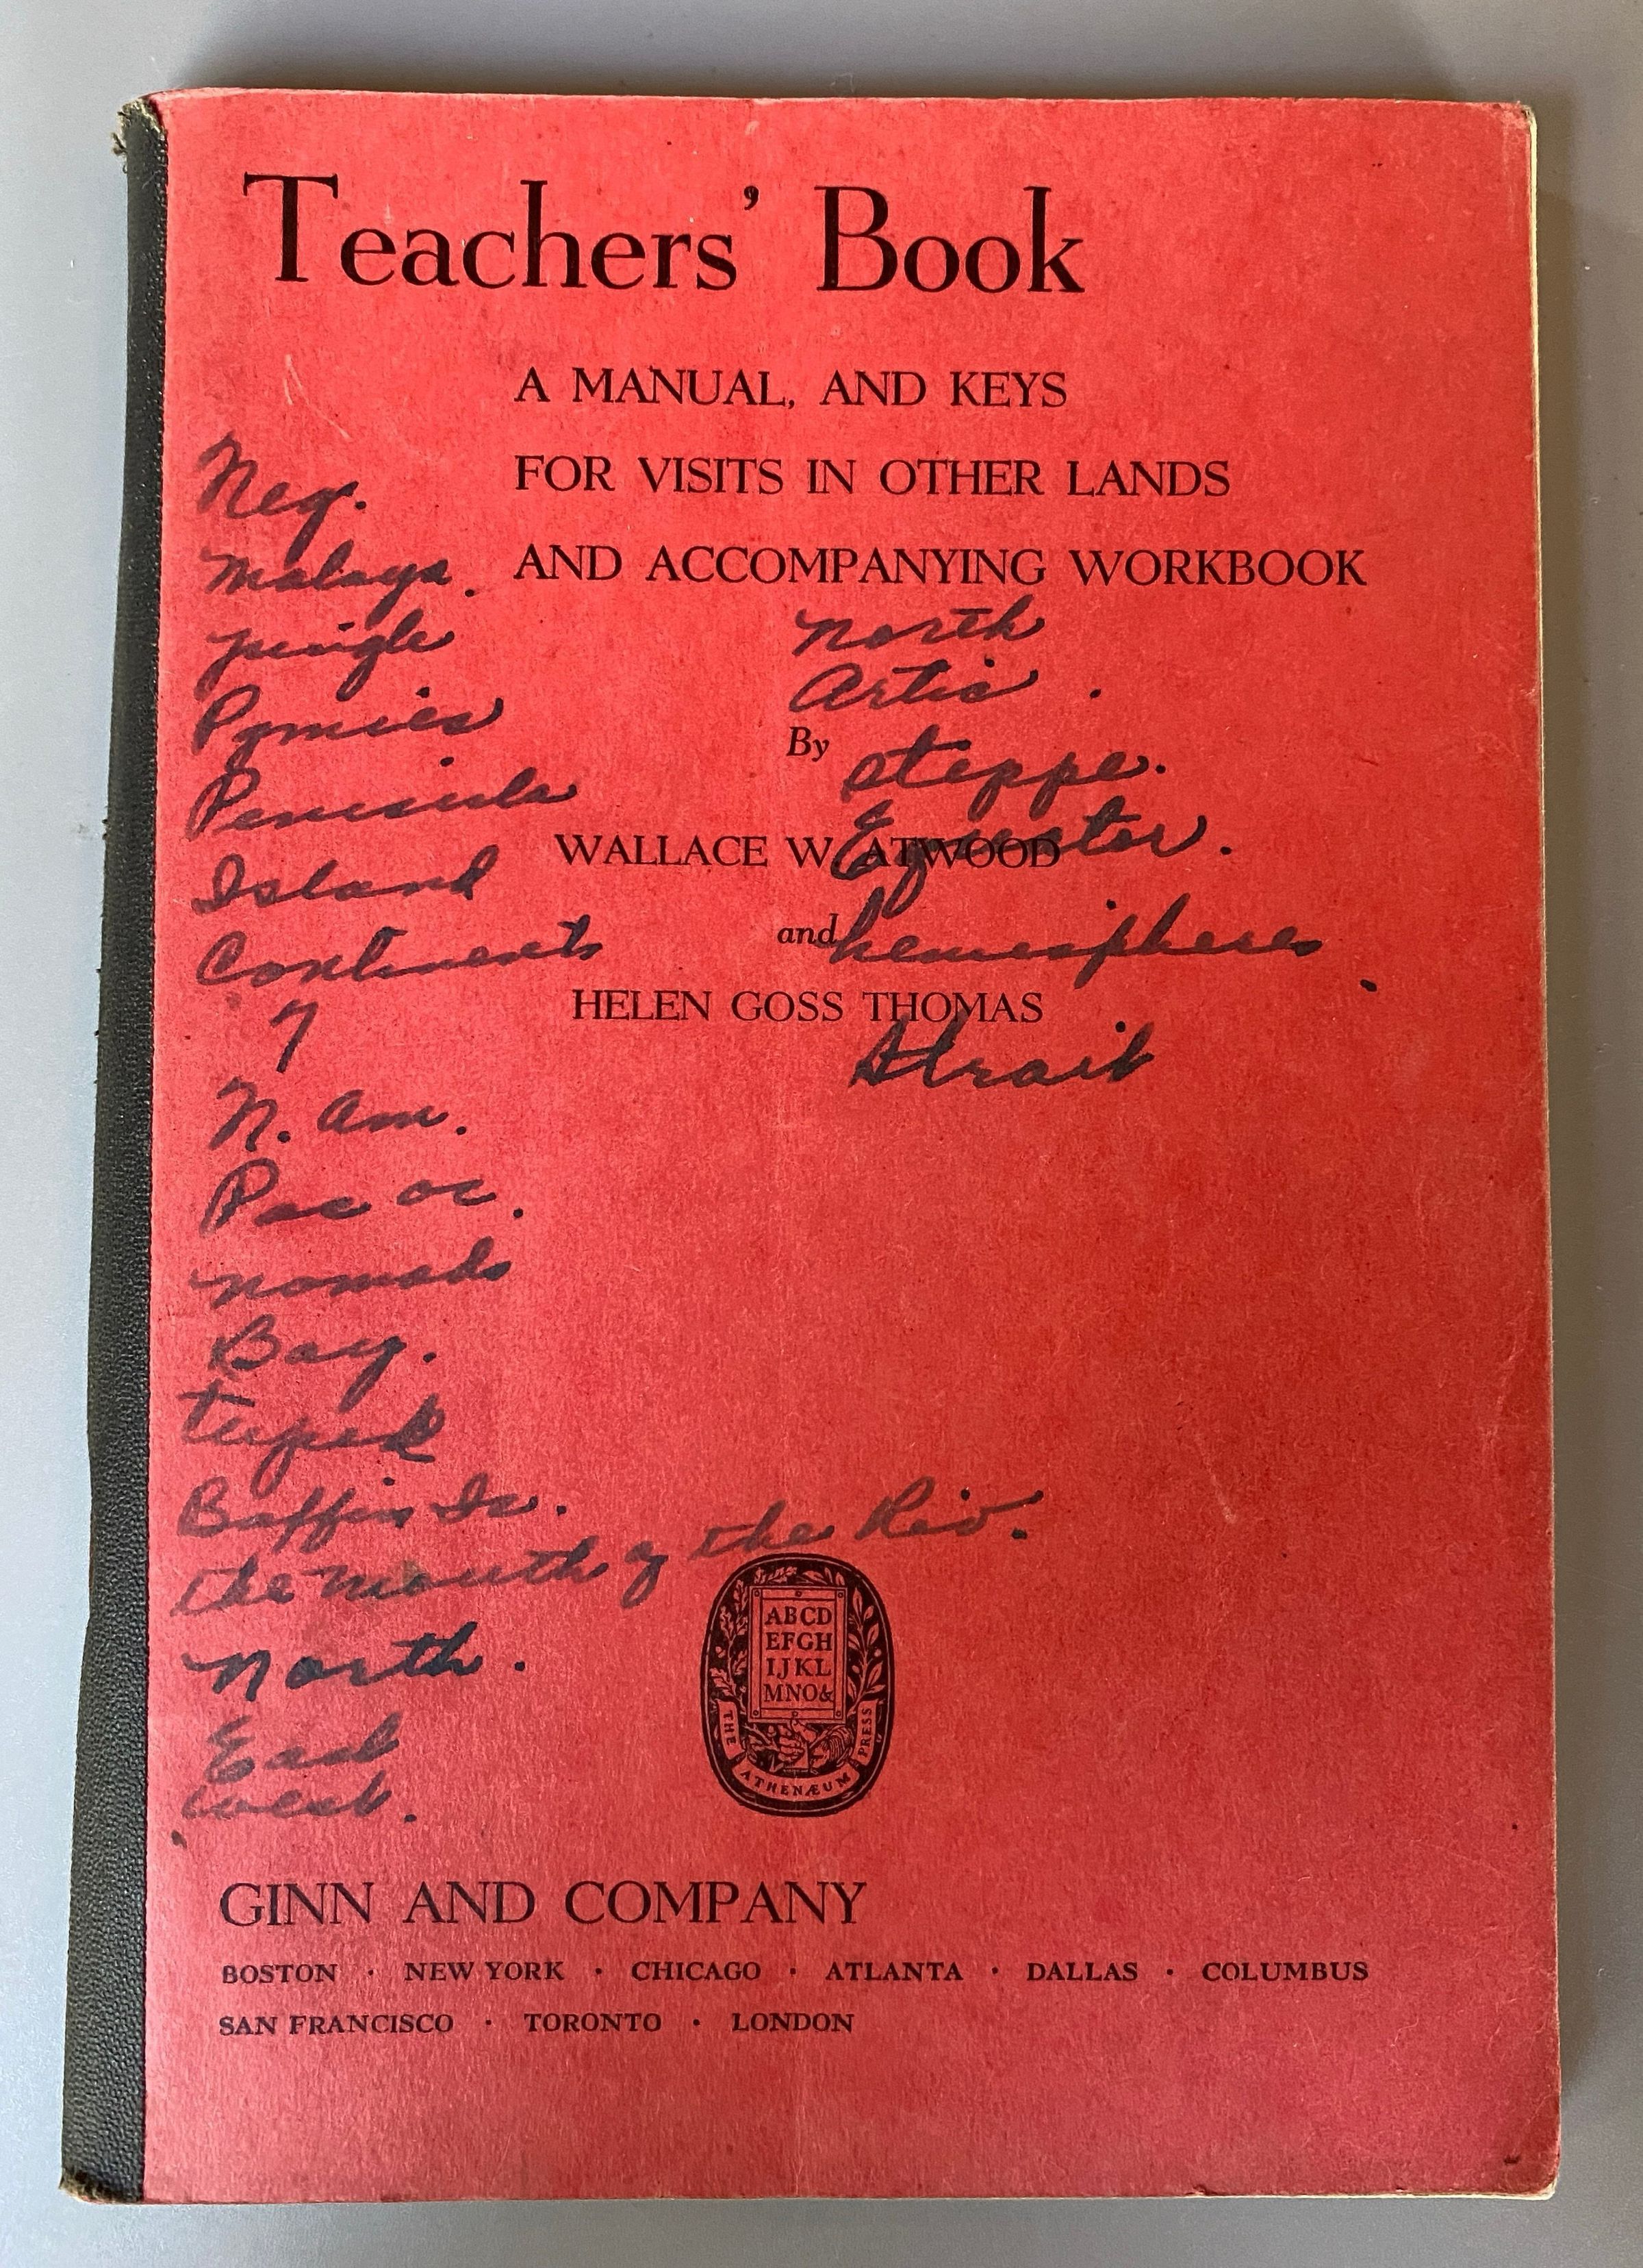 Teachers' Book
A MANUAL, AND KEYS
FOR VISITS IN OTHER LANDS
AND ACCOMPANYING WORKBOOK
By
WALLACE W. ATWOOD
and
HELEN GOSS THOMAS
Neg.
Malaya.
jungle
Pymies
Penisula
Island
Continents
7
N. Am.
Pac oc.
nomads
Bay.
tupek
Baffin Is.
the mouth of the Riv.
North.
East
West.
North
Artic.
steppe.
Equator.
hemispheres.
Strait
ABCD
EFGH
IJKL
MNO&
THE ATHENÆUM PRESS
GINN AND COMPANY
BOSTON · NEW YORK · CHICAGO · ATLANTA · DALLAS · COLUMBUS
SAN FRANCISCO · TORONTO · LONDON